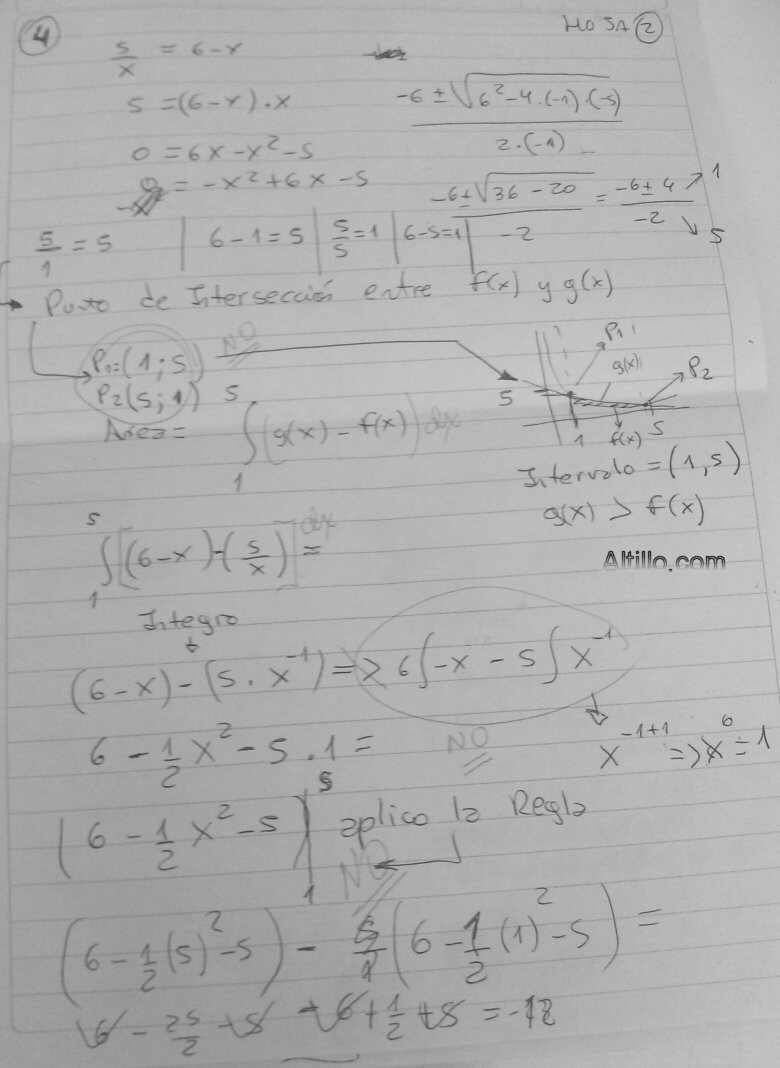 4
HOJA 2
5/x = 6-x
5 = (6-x).x
0 = 6x-x²-5
0 = -x²+6x-5
-6 ± √(6²-4.(-1).(-5)) / 2.(-1)
-6±√(36-20) / -2 = -6±4 / -2 ↗ 1 ↘ 5
5/1 = 5 | 6-1=5 | 5/5=1 | 6-5=1 |
→ Punto de Intersección entre f(x) y g(x)
P1=(1;5) NO
P2(5;1)
P1
g(x)
P2
5
1 f(x) 5
Area = ∫₁⁵ (g(x) - f(x)) dx
Intervalo = (1,5)
g(x) > f(x)
Altillo.com
∫₁⁵ [(6-x)-(5/x)] dx =
Integro
(6-x)-(5.x⁻¹) => 6∫-x - 5∫x⁻¹
6 - 1/2 x² - 5.1 = NO
x⁻¹⁺¹ => x⁰ = 1
(6 - 1/2 x² - 5)|₁⁵ aplico la Regla
NO
(6 - 1/2 (5)² - 5) - (6 - 1/2 (1)² - 5) =
6 - 25/2 - 5 - 6 + 1/2 + 5 = -12